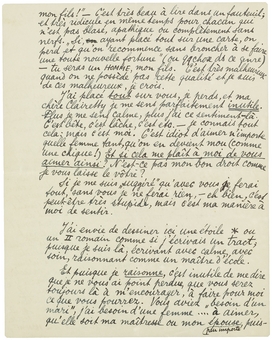 mon fils! — C'est très beau à lire dans un fauteuil
et très ridicule en même temps pour chacun qui
n'est pas blasé, apathique ou complètement sans
nerfs. Si, quand on place tout sur une carte, on
perd, et qu'on recommence sans broncher à se faire
une toute nouvelle fortune (ou qqchose de ce genre)
— tu seras un homme, mon fils. C'est très malheureux
quand on ne possède pas cette qualité et je suis
de ces malheureux, je crois.
J'ai placé tout sur vous, je perds, et ma
chère Clairette je me sens parfaitement inutile.
Plus je me sens calme, plus j'ai ce sentiment-là.
C'est bête, c'est lâche, c'est etc. — je connais tout
cela; mais c'est moi. C'est idiot d'aimer n'importe
quelle femme tant, qu'on en devient mou (comme
une chique!) Et si cela me plaît à moi de vous
aimer ainsi? N'est-ce pas mon bon droit comme
je vous laisse le vôtre?
Si je me suis suggéré qu'avec vous je ferai
tout, sans vous je ne ferai rien, — eh bien, c'est
peut-être très stupide, mais c'est ma manière à
moi de sentir.
J'ai envie de dessiner ici une étoile * ou
un II romain comme si j'écrivais un tract,
puisque je suis là, écrivant avec calme, avec
soin, raisonnant comme un maître d'école.
Et puisque je raisonne, c'est inutile de me dire
que je ne vous ai point perdue, que vous serez
toujours là à m'encourager, à faire pour moi
ce que vous pourrez. Vous aviez „besoin d'un
mari", j'ai besoin d'une femme .... à aimer,
qu'elle soit ma maîtresse ou mon épouse, peu
importe